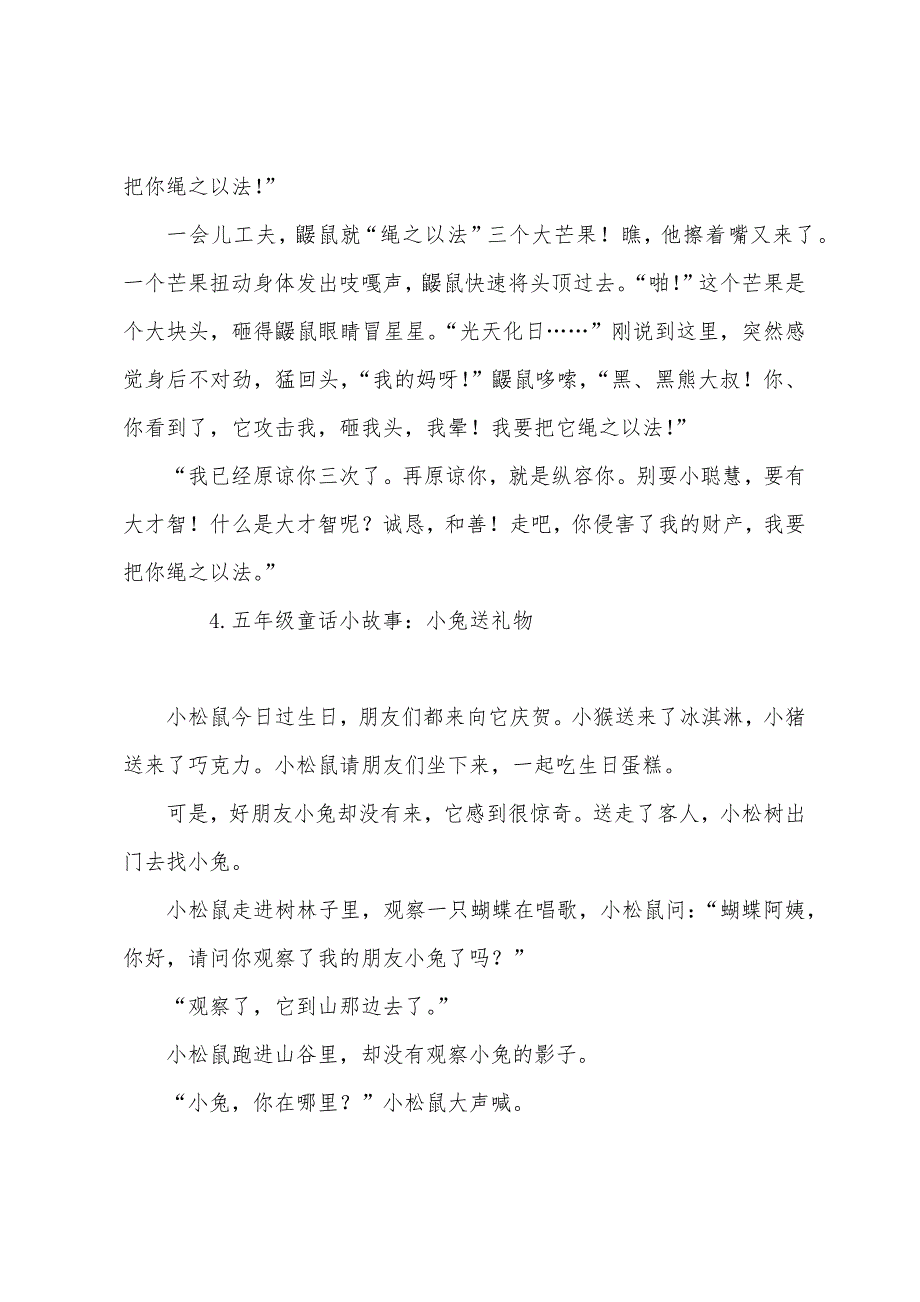 把你绳之以法！”
一会儿工夫，鼹鼠就“绳之以法”三个大芒果！瞧，他擦着嘴又来了。
一个芒果扭动身体发出吱嘎声，鼹鼠快速将头顶过去。“啪！”这个芒果是
个大块头，砸得鼹鼠眼睛冒星星。“光天化日……”刚说到这里，突然感
觉身后不对劲，猛回头，“我的妈呀！”鼹鼠哆嗦，“黑、黑熊大叔！你、
你看到了，它攻击我，砸我头，我晕！我要把它绳之以法！”
“我已经原谅你三次了。再原谅你，就是纵容你。别耍小聪慧，要有
大才智！什么是大才智呢？诚恳，和善！走吧，你侵害了我的财产，我要
把你绳之以法。”
4.五年级童话小故事：小兔送礼物
小松鼠今日过生日，朋友们都来向它庆贺。小猴送来了冰淇淋，小猪
送来了巧克力。小松鼠请朋友们坐下来，一起吃生日蛋糕。
可是，好朋友小兔却没有来，它感到很惊奇。送走了客人，小松树出
门去找小兔。
小松鼠走进树林子里，观察一只蝴蝶在唱歌，小松鼠问：“蝴蝶阿姨，
你好，请问你观察了我的朋友小兔了吗？”
“观察了，它到山那边去了。”
小松鼠跑进山谷里，却没有观察小兔的影子。
“小兔，你在哪里？”小松鼠大声喊。